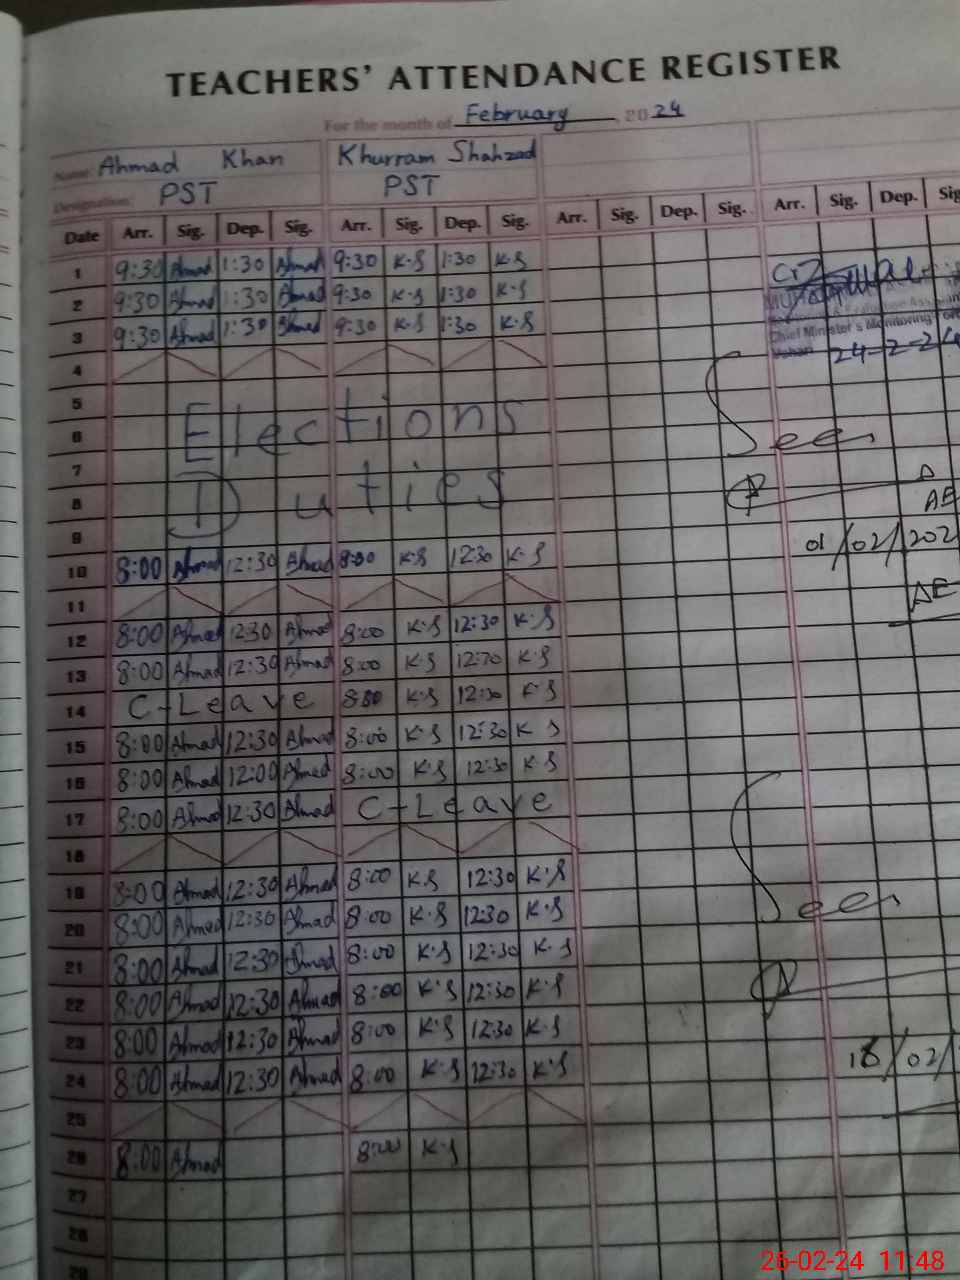 TEACHERS' ATTENDANCE REGISTER
For the month of February, 2024
Name: Ahmad Khan Khurram Shahzad
Designation: PST PST
Date Arr. Sig. Dep. Sig. Arr. Sig. Dep. Sig. Arr. Sig. Dep. Sig. Arr. Sig. Dep. Sig
1 9:30 Ahmad 1:30 Ahmad 9:30 K.S 1:30 K.S
2 9:30 Ahmad 1:30 Ahmad 9:30 K.S 1:30 K.S
3 9:30 Ahmad 1:30 Ahmad 9:30 K.S 1:30 K.S
Chief Minister's Monitoring
24-2-24
4
5
6 Elections
Seen
7
8 Duties
9
01/02/202
10 8:00 Ahmad 12:30 Ahmad 8:00 K.S 12:30 K.S
11
12 8:00 Ahmad 12:30 Ahmad 8:00 K.S 12:30 K.S
13 8:00 Ahmad 12:30 Ahmad 8:00 K.S K.S
14 C-Leave K.S 12:30 K.S
15 8:00 Ahmad 12:30 Ahmad 8:00 K.S 12:30 K S
16 8:00 Ahmad 12:00 Ahmad 8:00 K.S 12:30 K.S
17 8:00 Ahmad 12:30 Ahmad C-Leave
18
19 8:00 Ahmad 12:30 Ahmad 8:00 K.S 12:30 K.S
20 8:00 Ahmad 12:30 Ahmad 8:00 K.S 12:30 K.S
Seen
21 8:00 Ahmad 12:30 Ahmad 8:00 K.S 12:30 K.S
22 8:00 Ahmad 12:30 Ahmad 8:00 K.S 12:30 K.S
23 8:00 Ahmad 12:30 Ahmad 8:00 K.S 12:30 K.S
24 8:00 Ahmad 12:30 Ahmad 8:00 K.S 12:30 K.S
16/02/
25
26 8:00 Ahmad 8:00 K.S
27
28
29
26-02-24 11:48